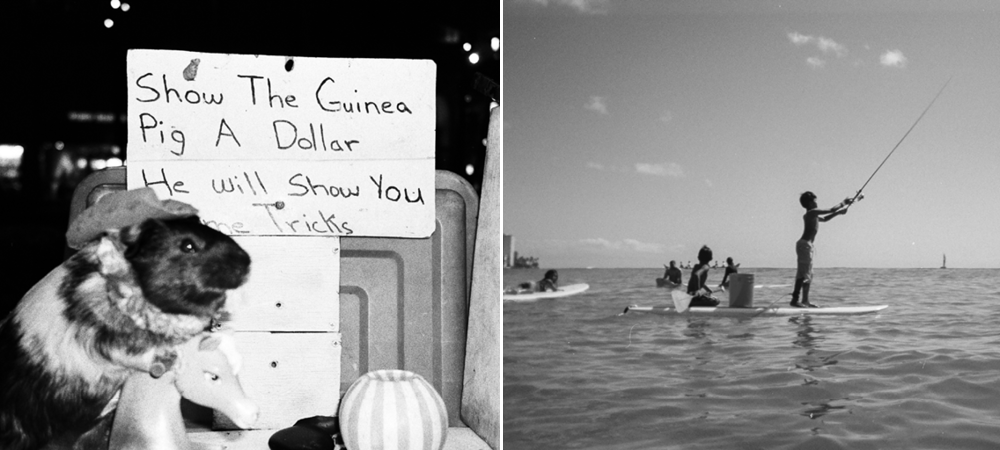 Show The Guinea
Pig A Dollar
He will Show You
me Tricks